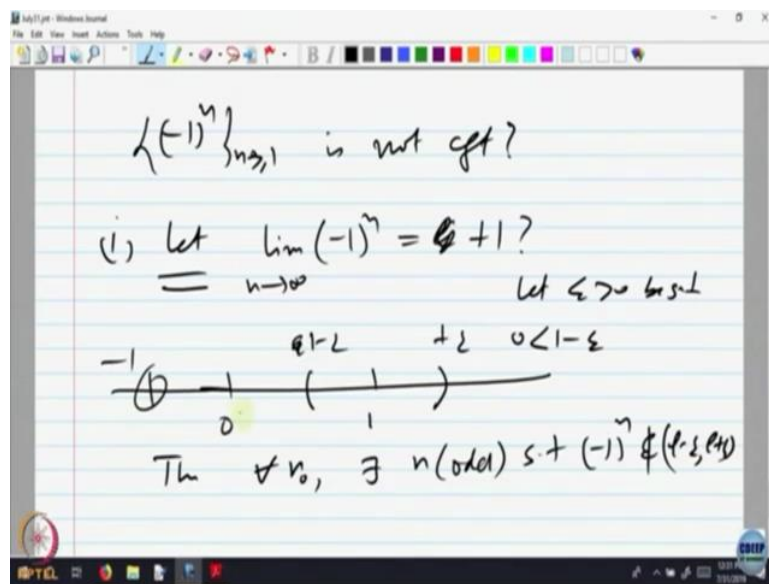 July31.jnt - Windows Journal
File Edit View Insert Actions Tools Help
{(-1)^n}_{n≥1} is not cgt?
(i) Let lim_{n→∞} (-1)^n = +1?
Let ε > 0 be s.t
0 < 1-ε
-1 0 1
Th ∀ n₀, ∃ n(odd) s.t (-1)^n ∉ (1-ε, 1+ε)
NPTEL
CDEEP
7/31/2019